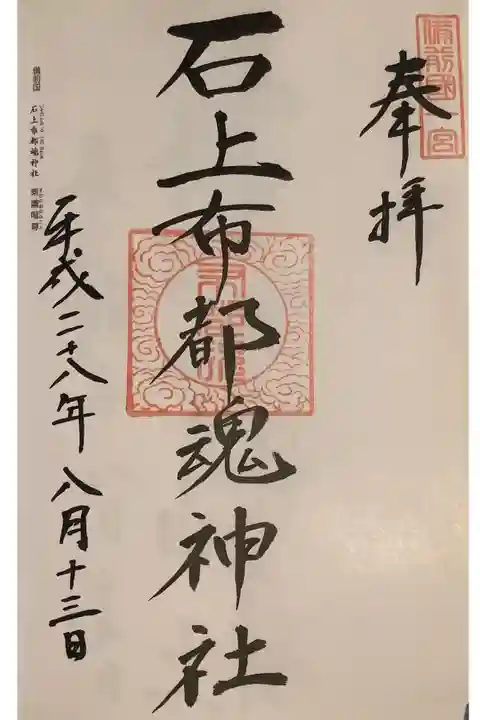 備前國一宮
奉拝
石上布都魂神社
布都魂
平成二十八年八月十三日
備前国 石上布都魂神社